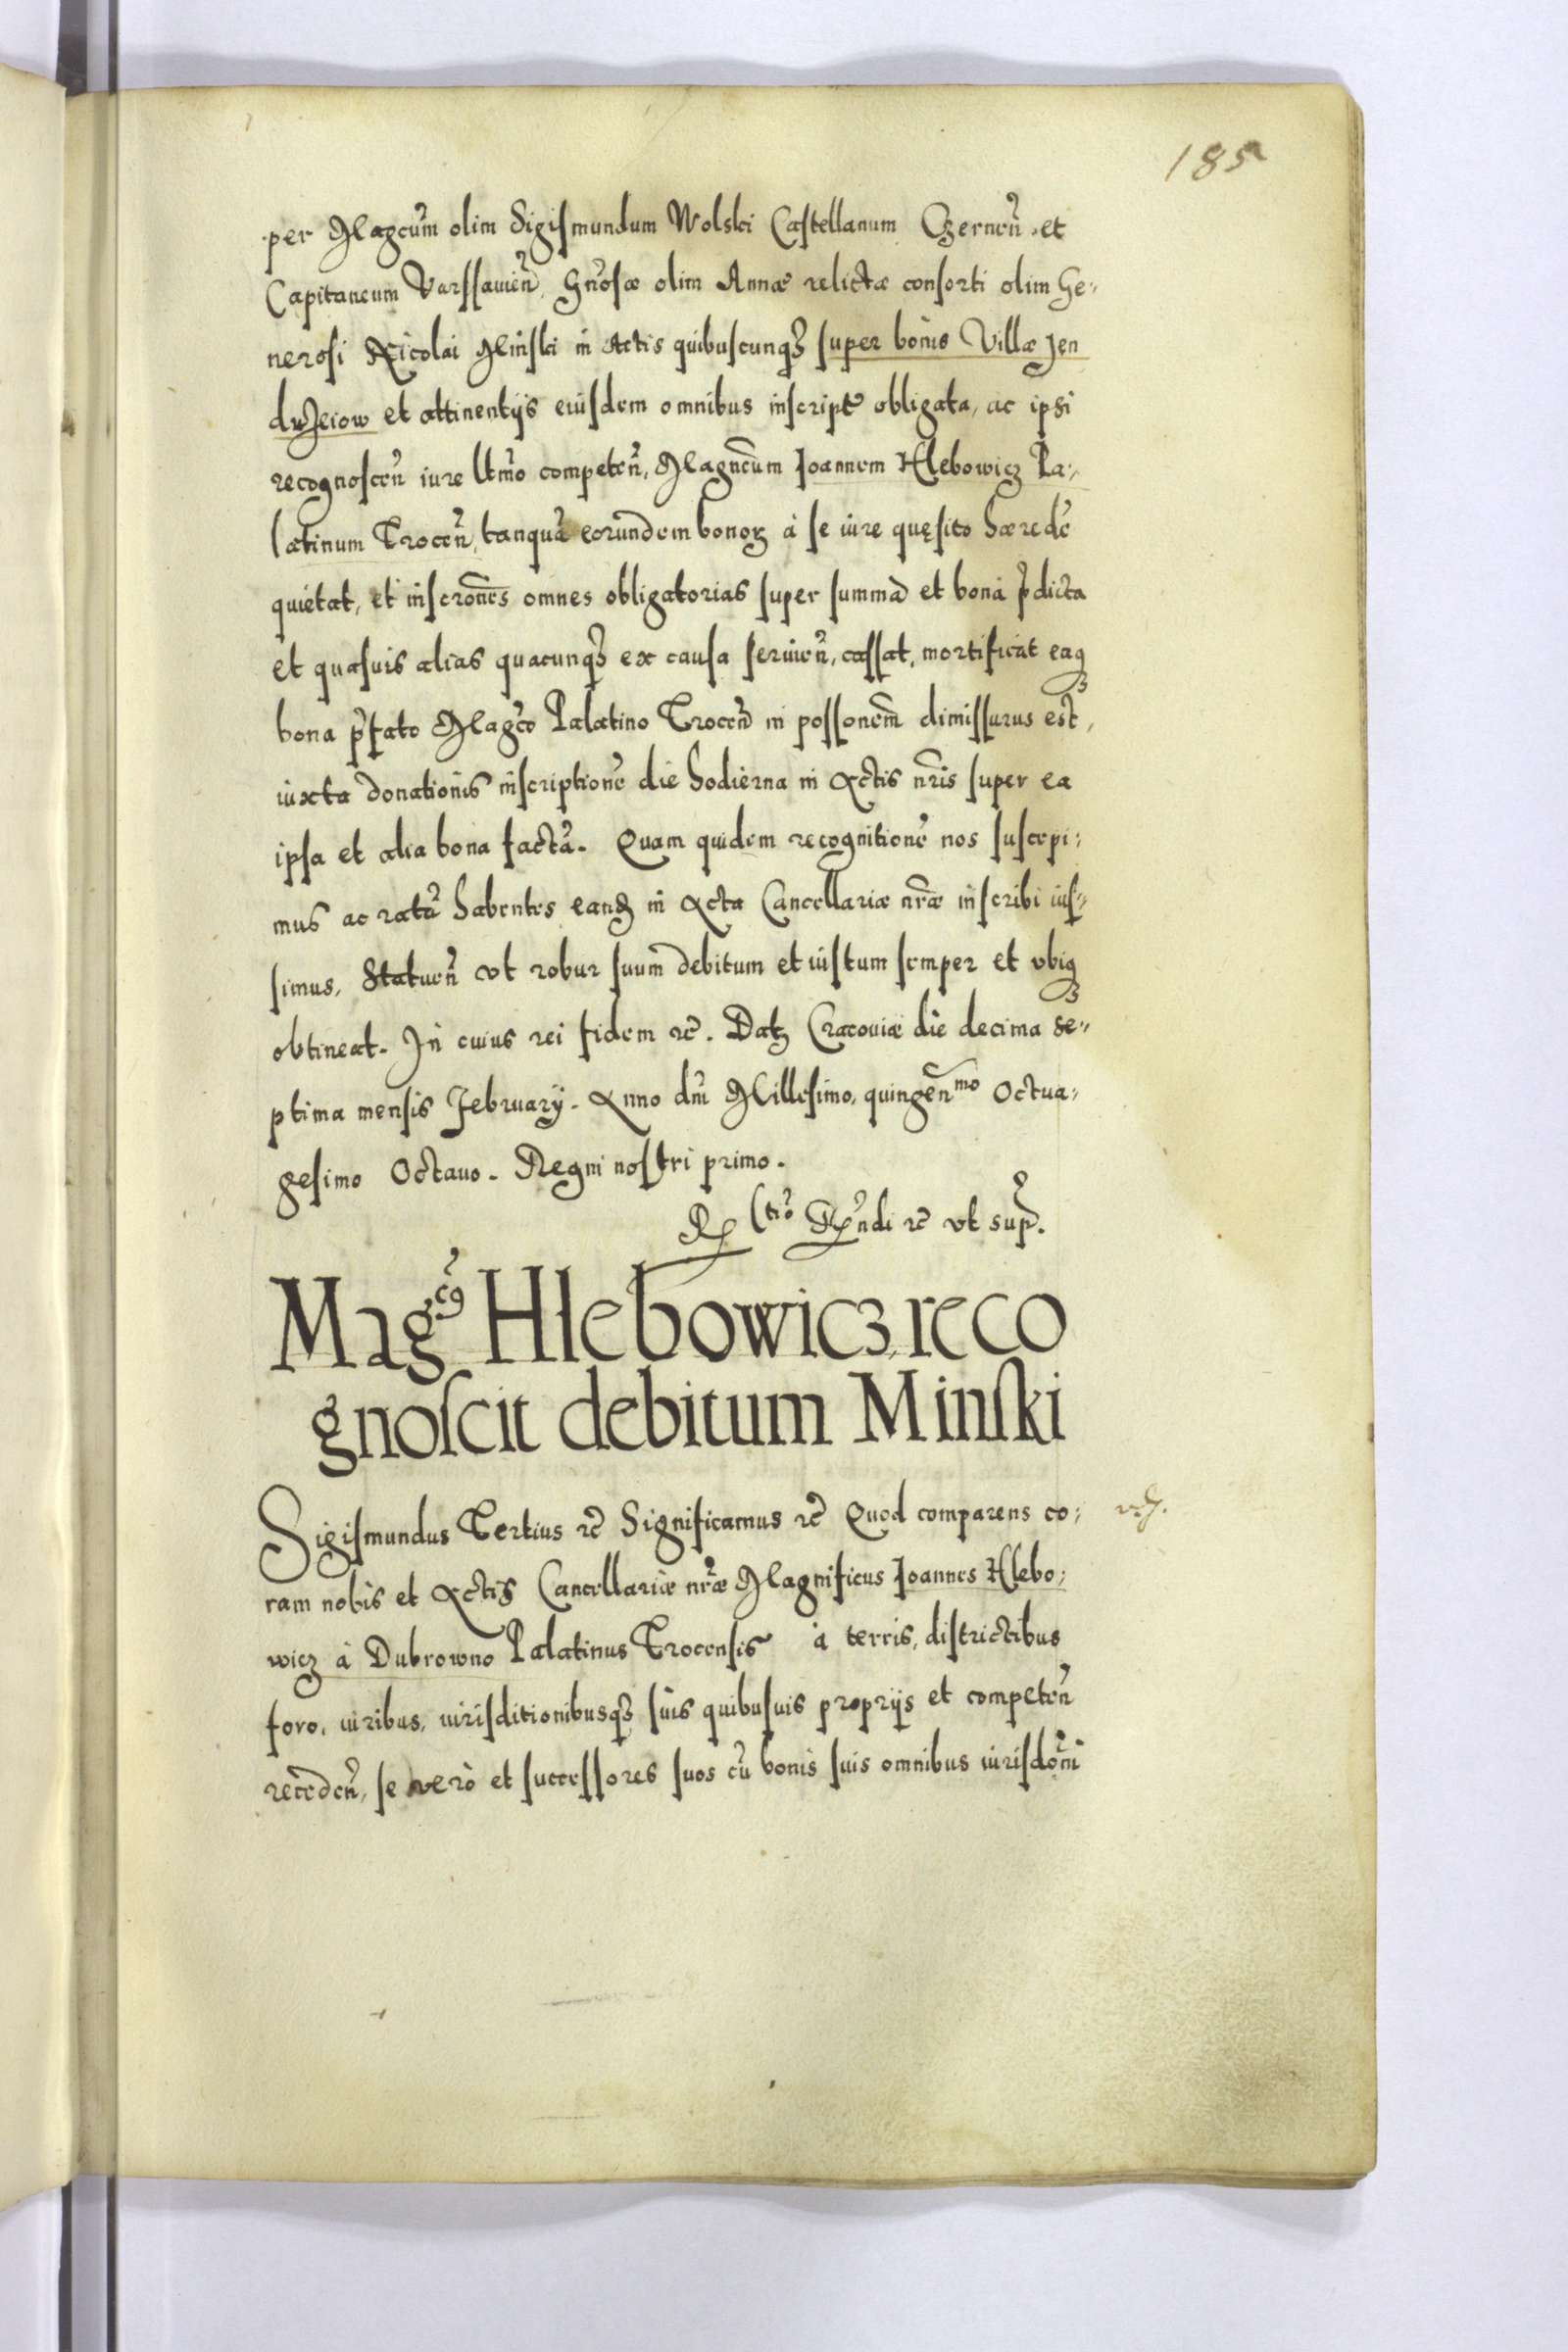 185
per Magcu̅m olim Sigismundum Wolski Castellanum Czernen̅ et
Capitaneum Varssauien̅. Gn̅rosæ olim Annæ relictæ consorti olim Ge-
nerosi Nicolai Minski in Actis quibuscunqꝫ super bonis Villæ Jen
drzeiow et attinentijs eiusdem omnibus inscript obligata, ac ipsi
recognoscen̅ iure ltm̅o competen̅, Magncu̅m Joannem Hlebowicz Pa-
latinum Trocen̅, tanqua̅ eorundem bonoꝝ à se iure quęsito hærede̅
quietat, et inscron̅es omnes obligatorias super summa et bona p̅dicta
et quasuis alias quacunqꝫ ex causa seruien̅, cassat, mortificat eaqꝫ
bona p̅fato Magc̅o Palatino Trocen̅ in posson̅em dimissurus est,
iuxta donationis inscriptione̅ die hodierna in Actis nr̅is super ea
ipsa et alia bona facta̅. Quam quidem recognitione̅ nos suscepi-
mus ac rata̅ habentes eandꝫ in Acta Cancellariæ nr̅æ inscribi ius-
simus, Statuen̅ vt robur suum debitum et iustum semper et vbiqꝫ
obtineat. In cuius rei fidem &c̅. Datꝫ Cracouiæ die decima se-
ptima mensis February. Anno dn̅i Millesimo, quingen̅mo Octua-
gesimo Octauo. Regni nostri primo.
Rndi &c̅ vt sup̅.
Magc̅9 Hlebowicz, reco
gnoscit debitum Minski
Sigismundus Tertius &c̅ Significamus &c̅ Quod comparens co-
ram nobis et Actis Cancellariæ nr̅æ Magnificus Joannes Hlebo-
wicz à Dubrowno Palatinus Trocensis à terris, districtibus
foro, iuribus, iurisditionibusqꝫ suis quibusuis proprijs et competen̅
receden̅, se vero et successores suos cu̅ bonis suis omnibus iurisdon̅i